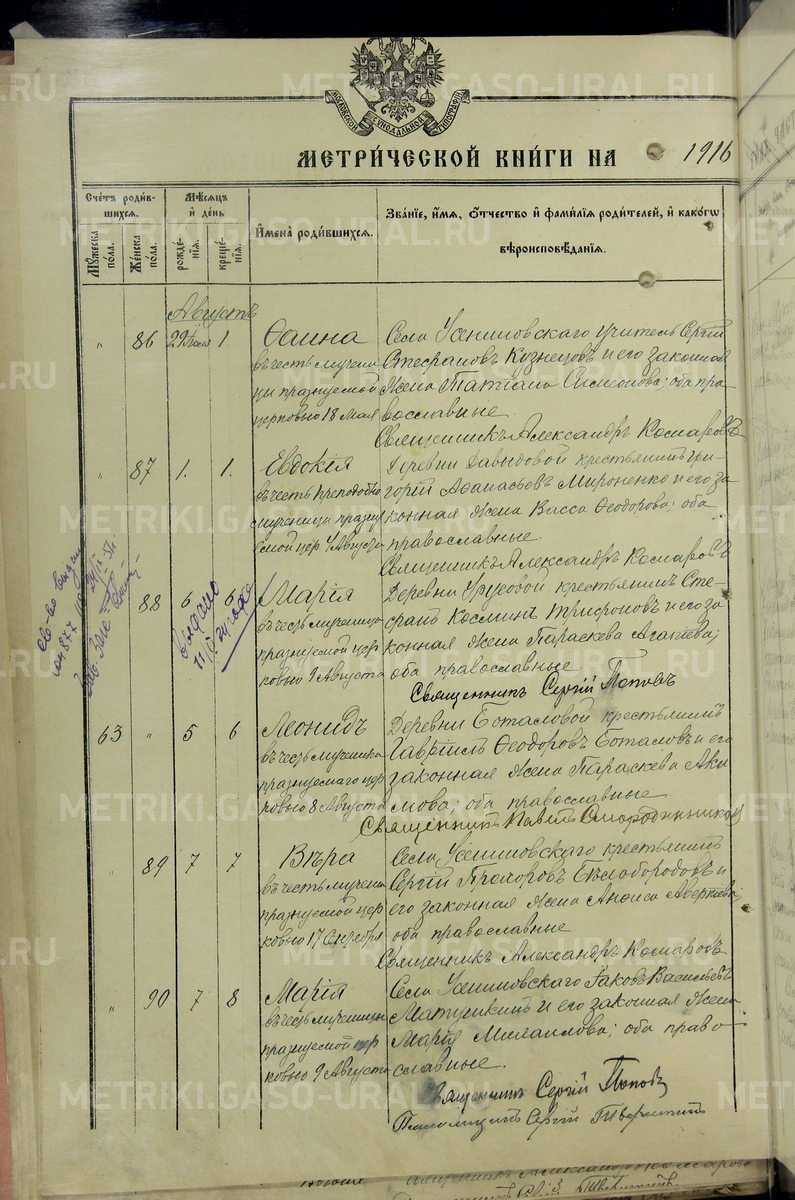 МОСКОВСКОЙ СѴНОДАЛЬНОЙ ТИПОГРАФІИ
МЕТРИ́ЧЕСКОЙ КНИ́ГИ НА 1916
Сче́тъ роди́в-
шихся.
Мѣ́сяцъ
и҆ де́нь
И҆мена̀ роди́вшихся.
Зва́нїе, и҆́мя, ѻ҆́тчество и҆ фами́лїя роди́телей, и҆ како́гѡ
вѣроисповѣ́данїя.
Мꙋ́жеска по́ла.
Же́нска по́ла.
рожде́нїя.
креще́нїя.
Августъ
" 86 29 Іюля 1
Ѳаина
въ честь мучени
цы празнуемой
церковью 18 Мая
Села Усениновскаго учитель Сергій
Стефановъ Кузнецовъ и его законная
жена Татіана Симеонова; оба пра-
вославные.
Священникъ Александръ Комаровъ
" 87 1. 1.
Евдокія
въ честь преподобно
мученицы празну
емой цер 4 Августа
Деревни Давыдовой крестьянинъ Гри-
горій Аѳанасьевъ Мироненко и его за
конная жена Васса Ѳеодорова; оба
православные.
Священникъ Александръ Комаровъ
" 88 6 6
Марія
въ честь мученицы
празнуемой цер
ковью 9 Августа
Деревни стефанъ Косминъ Трифоновъ и его за
конная жена Параскева Агапіева;
оба православные
Священникъ Сергій Поповъ
св-во выдано
выдано
63 " 5 6
Леонидъ
въ честь мученика
празнуемаго цер
ковью 8 Августа
Деревни Боталовой крестьянинъ
Гавріилъ Ѳеодоровъ Боталовъ и его
законная жена Параскева Аки
мова; оба православные
Священникъ Павелъ Смородинниковъ
" 89 7 7
Вѣра
въ честь мучени
празнуемой цер
ковью 17 Сентября
Села Усениновскаго крестьянинъ
Сергій Прохоровъ Бѣлобородовъ и
его законная жена Анѳиса Аверкіева;
оба православные
Священникъ Александръ Комаровъ
" 90 7 8
Марія
въ честь мученицы
празнуемой цер
ковью 9 Августа
Села Усениновскаго Іаковъ Васильевъ
Матушкинъ и его законная жена
Марія Михаилова; оба право
славные.
Священникъ Сергій Поповъ
Псаломщикъ Сергій
METRIKI.GASO-URAL.RU